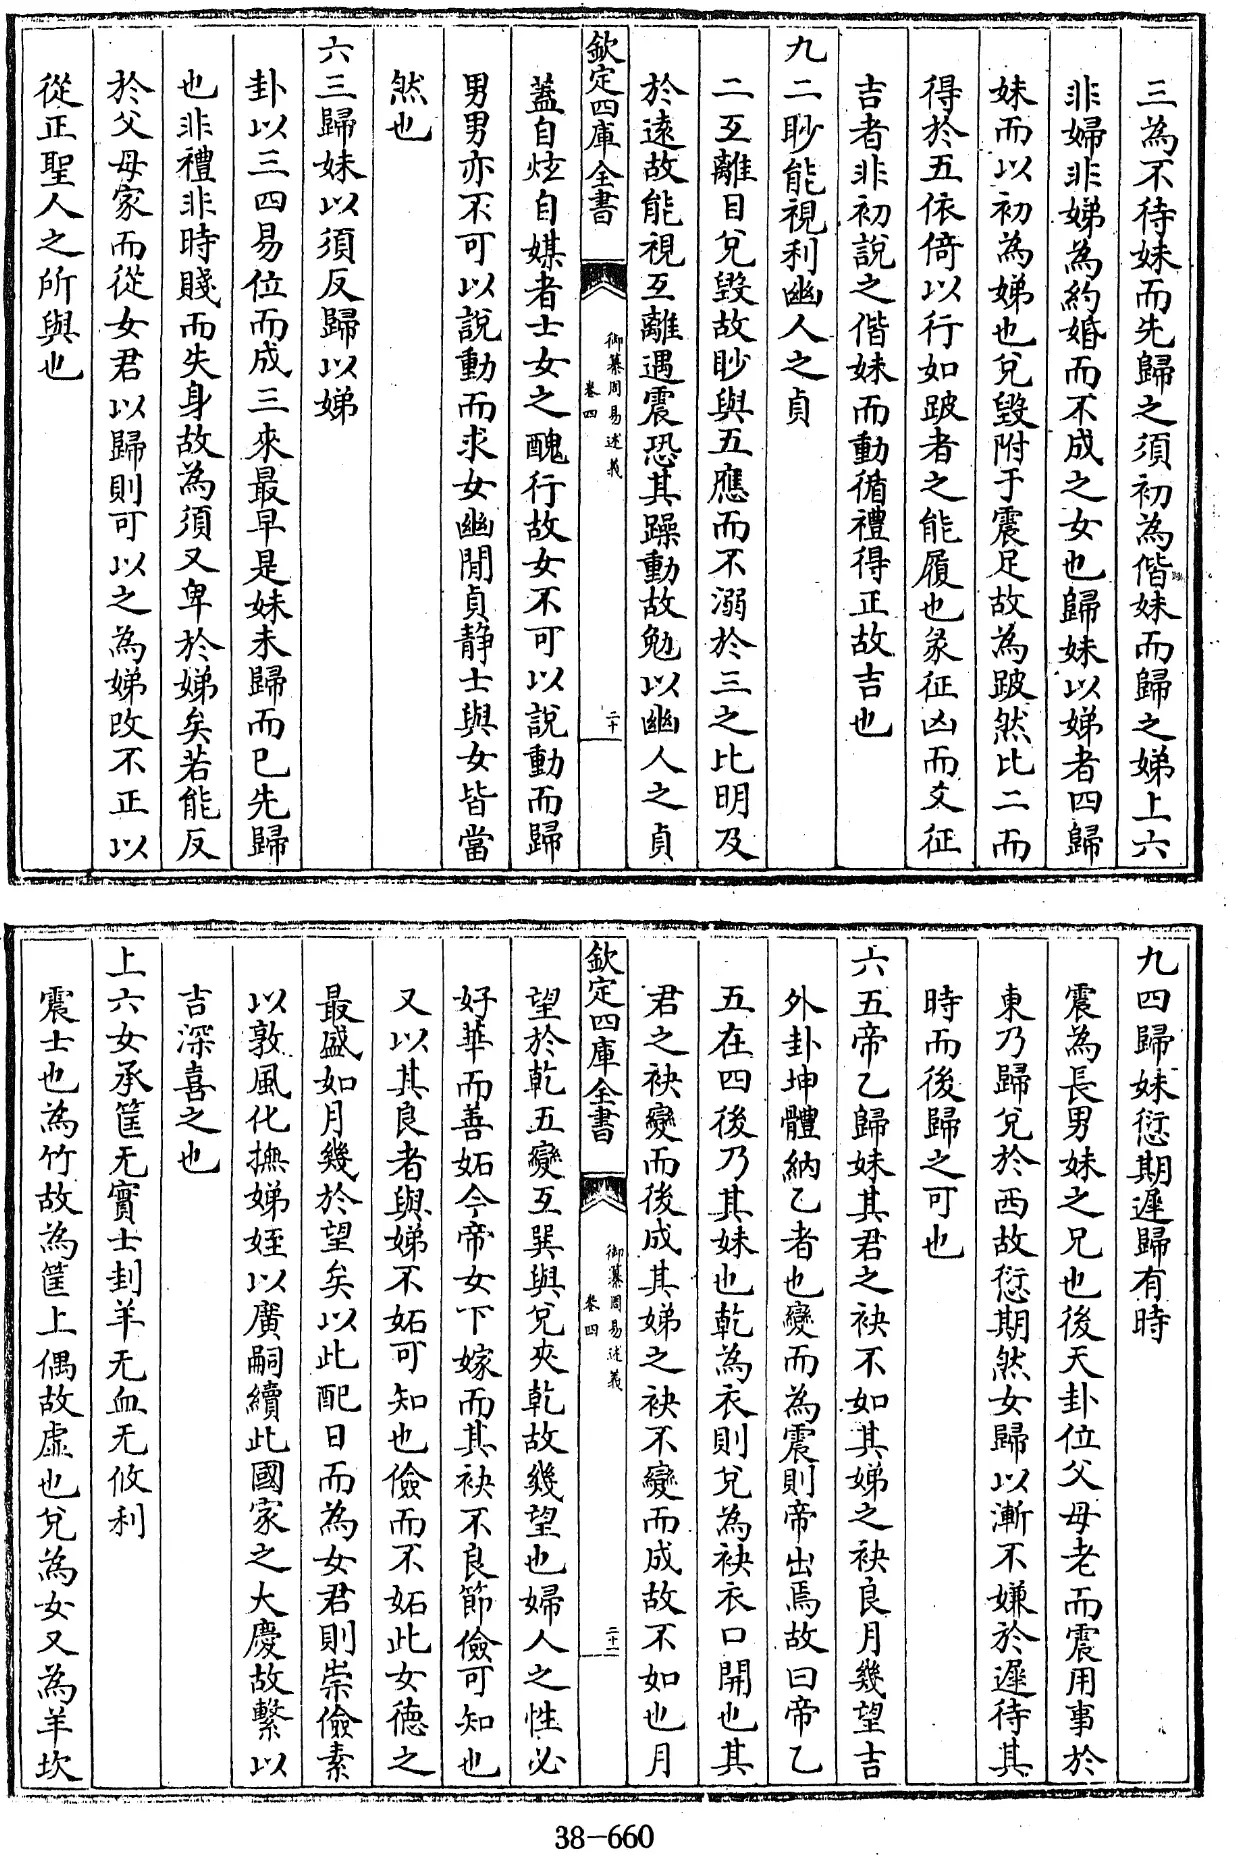 三為不待妹而先歸之須初為偕妹而歸之娣上六
非婦非娣為約婚而不成之女也歸妹以娣者四歸
妹而以初為娣也兌毀附于震足故為跛然比二而
得於五依倚以行如跛者之能履也彖征凶而爻征
吉者非初說之偕妹而動循禮得正故吉也
九二眇能視利幽人之貞
二互離目兌毀故眇與五應而不溺於三之比明及
於遠故能視互離遇震恐其躁動故勉以幽人之貞
欽定四庫全書
御纂周易述義
卷四
二十
蓋自炫自媒者士女之醜行故女不可以說動而歸
男男亦不可以說動而求女幽閒貞靜士與女皆當
然也
六三歸妹以須反歸以娣
卦以三四易位而成三來最早是妹未歸而已先歸
也非禮非時賤而失身故為須又卑於娣矣若能反
於父母家而從女君以歸則可以之為娣改不正以
從正聖人之所與也
九四歸妹愆期遲歸有時
震為長男妹之兄也後天卦位父母老而震用事於
東乃歸兌於西故愆期然女歸以漸不嫌於遲待其
時而後歸之可也
六五帝乙歸妹其君之袂不如其娣之袂良月幾望吉
外卦坤體納乙者也變而為震則帝出焉故曰帝乙
五在四後乃其妹也乾為衣則兌為袂衣口開也其
君之袂變而後成其娣之袂不變而成故不如也月
欽定四庫全書
御纂周易述義
卷四
二十一
望於乾五變互巽與兌夾乾故幾望也婦人之性必
好華而善妬今帝女下嫁而其袂不良節儉可知也
又以其良者與娣不妬可知也儉而不妬此女德之
最盛如月幾於望矣以此配日而為女君則崇儉素
以敦風化撫娣姪以廣嗣續此國家之大慶故繫以
吉深喜之也
上六女承筐无實士刲羊无血无攸利
震士也為竹故為筐上偶故虛也兌為女又為羊坎
38-660